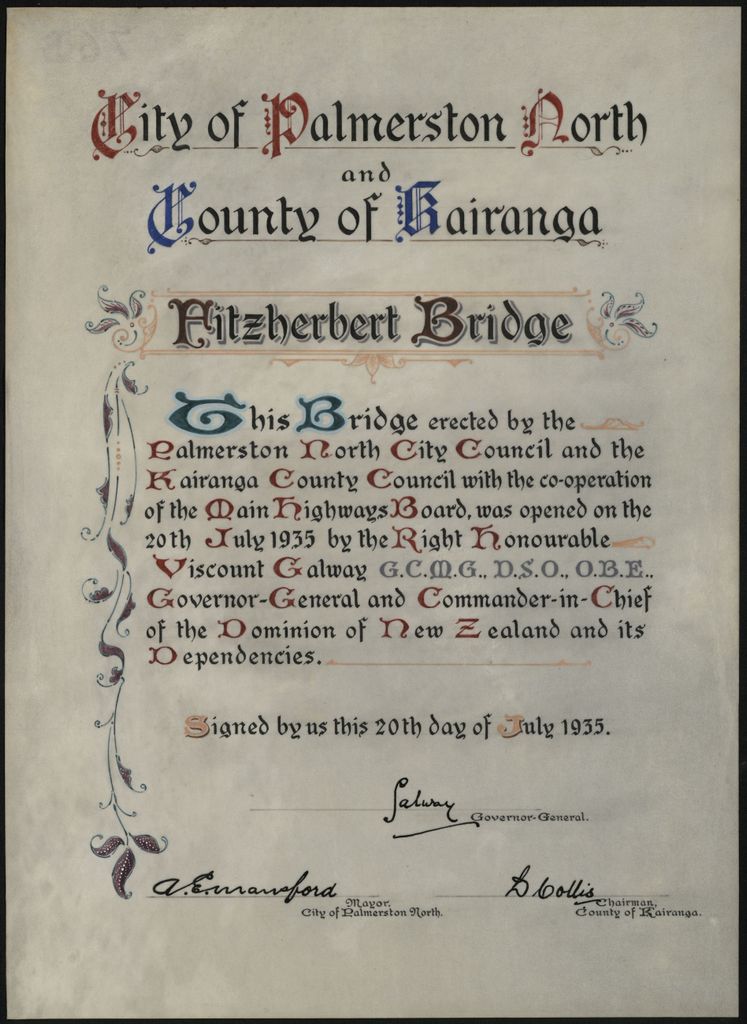 City of Palmerston North
and
County of Kairanga
Fitzherbert Bridge
This Bridge erected by the
Palmerston North City Council and the
Kairanga County Council with the co-operation
of the Main Highways Board, was opened on the
20th July 1935 by the Right Honourable
Viscount Galway G.C.M.G., D.S.O., O.B.E.,
Governor-General and Commander-in-Chief
of the Dominion of New Zealand and its
Dependencies.
Signed by us this 20th day of July 1935.
Galway
Governor-General.
A.E. Mansford
D Collis
Mayor,
Chairman,
City of Palmerston North.
County of Kairanga.